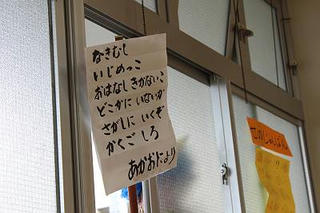 なきむし
いじめっこ
おはなしきかないこ
どこかに いないか
さがしに いくぞ
かくごしろ
あかおにより